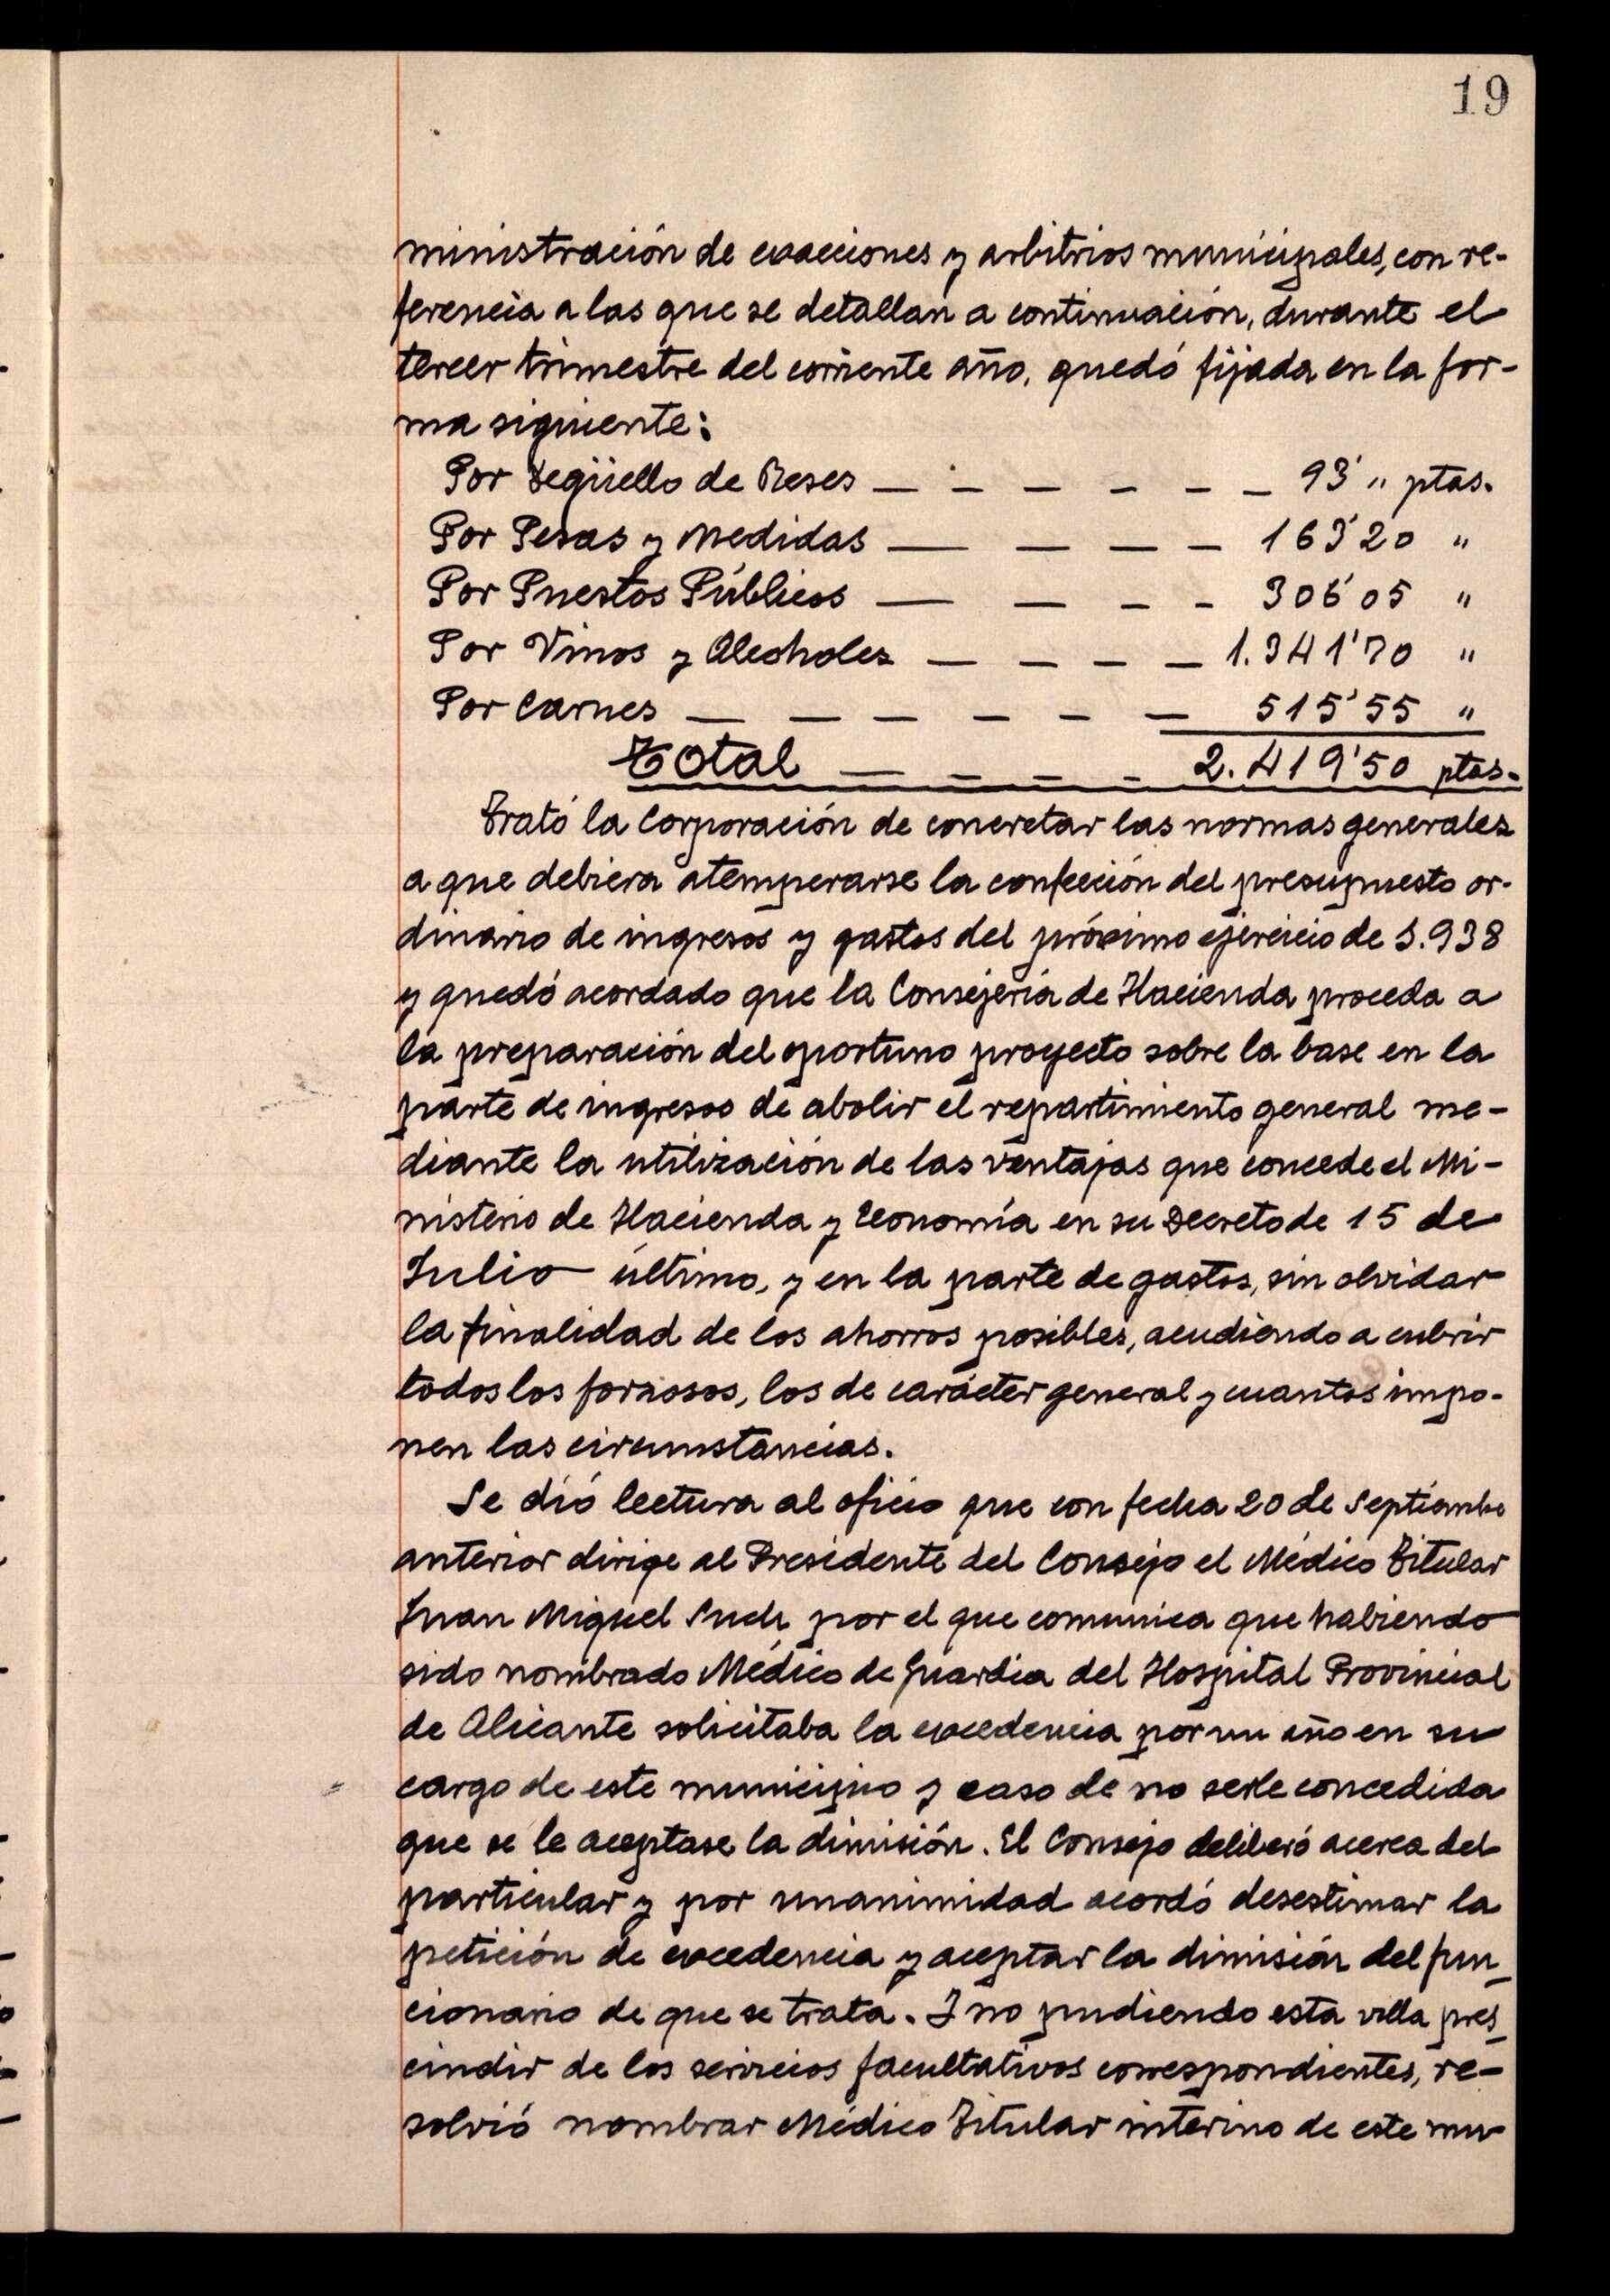 19
ministración de exacciones y arbitrios municipales, con re-
ferencia a las que se detallan a continuación, durante el
tercer trimestre del corriente año, quedó fijada en la for-
ma siguiente:
Por Degüello de Reses — — — — — — 93'" ptas.
Por Pesas y Medidas — — — — 163'20 "
Por Puestos Públicos — — — — 306'05 "
Por Vinos y Alcoholes — — — — 1.341'70 "
Por Carnes — — — — — — 515'55 "
Total — — — — 2.419'50 ptas.
Trató la Corporación de concretar las normas generales
a que debiera atemperarse la confección del presupuesto or-
dinario de ingresos y gastos del próximo ejercicio de 1.938
y quedó acordado que la Consejería de Hacienda proceda a
la preparación del oportuno proyecto sobre la base en la
parte de ingresos de abolir el repartimiento general me-
diante la utilización de las ventajas que concede el Mi-
nisterio de Hacienda y Economía en su Decreto de 15 de
Julio último, y en la parte de gastos, sin olvidar
la finalidad de los ahorros posibles, acudiendo a cubrir
todos los forzosos, los de carácter general y cuantos impo-
nen las circunstancias.
Se dió lectura al oficio que con fecha 20 de Septiembre
anterior dirige al Presidente del Consejo el Médico Titular
Juan Miguel Such por el que comunica que habiendo
sido nombrado Médico de Guardia del Hospital Provincial
de Alicante solicitaba la excedencia por un año en su
cargo de este municipio y caso de no serle concedida
que se le aceptase la dimisión. El Consejo deliberó acerca del
particular y por unanimidad acordó desestimar la
petición de excedencia y aceptar la dimisión del fun-
cionario de que se trata. Y no pudiendo esta villa pres-
cindir de los servicios facultativos correspondientes, re-
solvió nombrar Médico Titular interino de este mu-